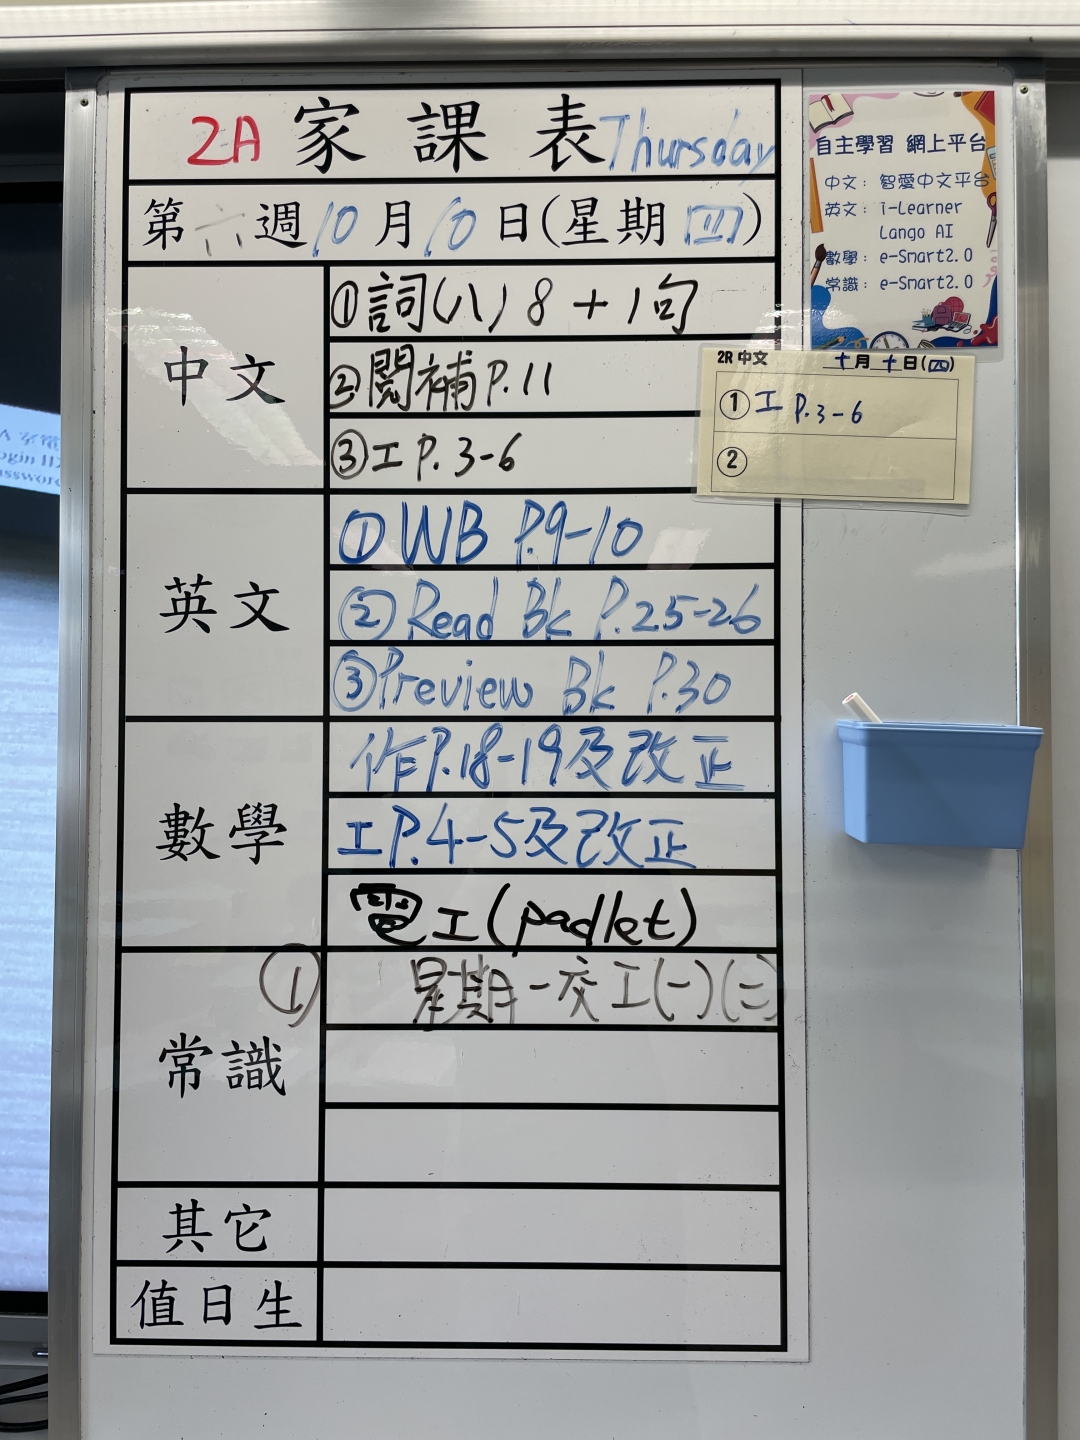 2A 家課表 Thursday
第六週 10月10日(星期四)
中文
①詞(八) 8 + 1句
②閱補 P.11
③工 P.3-6
英文
①WB P.9-10
②Read Bk P.25-26
③Preview Bk P.30
數學
作P.18-19及改正
工P.4-5及改正
電工(padlet)
常識
① 星期一交工(一)(二)
其它
值日生
自主學習 網上平台
中文： 智愛中文平台
英文： i-Learner
Lango AI
數學： e-Smart2.0
常識： e-Smart2.0
2R 中文 十月十日(四)
① 工 P.3-6
②